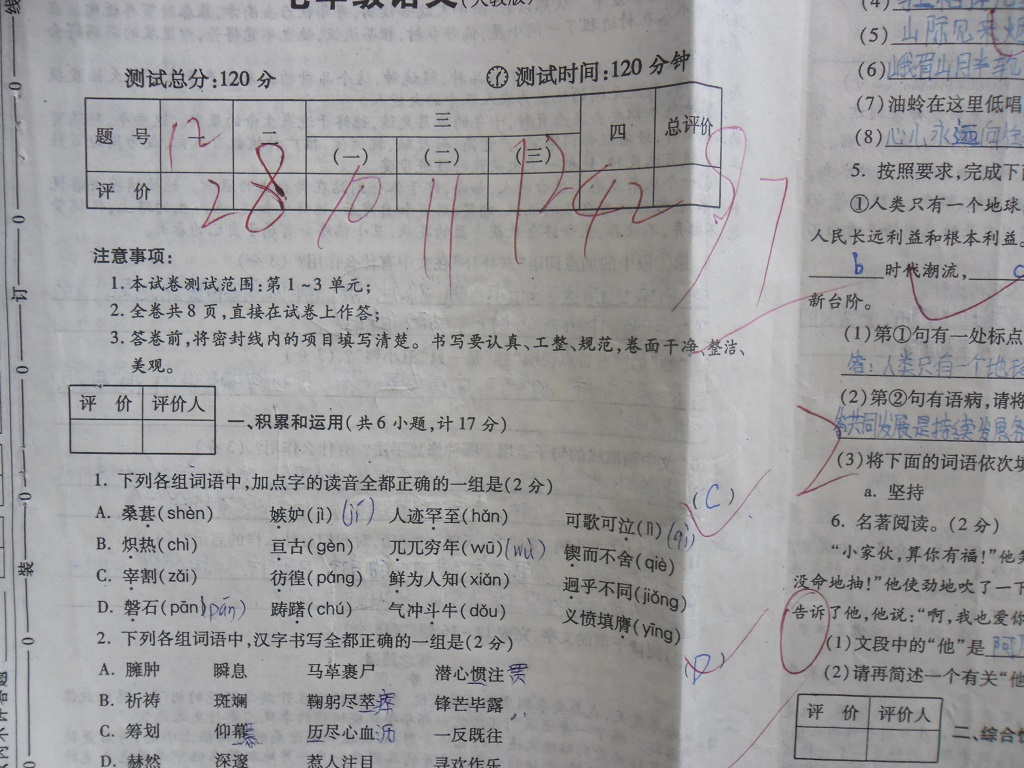 七年级语文(人教版)
测试总分:120分 ⑦ 测试时间:120分钟
题 号 12 二 三 四 总评价
(一) (二) (三)
评 价 28 10 11 12 42 97
注意事项:
1.本试卷测试范围:第1~3单元;
2.全卷共8页,直接在试卷上作答;
3.答卷前,将密封线内的项目填写清楚。书写要认真、工整、规范,卷面干净、整洁、
美观。
评 价 评价人
一、积累和运用(共6小题,计17分)
1. 下列各组词语中,加点字的读音全都正确的一组是(2分) (C)
A. 桑葚(shèn) 嫉妒(jì)(jí) 人迹罕至(hǎn) 可歌可泣(lì)(qì)
B. 炽热(chì) 亘古(gèn) 兀兀穷年(wū)(wù) 锲而不舍(qiè)
C. 宰割(zǎi) 彷徨(páng) 鲜为人知(xiǎn) 迥乎不同(jiǒng)
D. 磐石(pān)(pán) 踌躇(chú) 气冲斗牛(dǒu) 义愤填膺(yīng)
2. 下列各组词语中,汉字书写全都正确的一组是(2分) (D)
A. 臃肿 瞬息 马革裹尸 潜心惯注 贯
B. 祈祷 斑斓 鞠躬尽萃 瘁 锋芒毕露
C. 筹划 仰幕 慕 历尽心血 历 一反既往
D. 赫然 深邃 惹人注目 寻欢作乐
(4)
(5) 山际见来烟
(6) 峨眉山月半轮
(7)油蛉在这里低唱
(8) 心儿永远向往
5. 按照要求,完成下
①人类只有一个地球
人民长远利益和根本利益。
b 时代潮流, c
新台阶。
(1)第①句有一处标点
答:人类只有一个地球
(2)第②句有语病,请将
共同发展是持续发展
(3)将下面的词语依次填
a. 坚持
6. 名著阅读。(2分)
“小家伙,算你有福!”他
没命地抽!”他使劲地吹了一下
告诉了他,他说:“啊,我也爱你
(1)文段中的“他”是 阿
(2)请再简述一个有关“他
评 价 评价人
二、综合
线
0
订
0
装
0